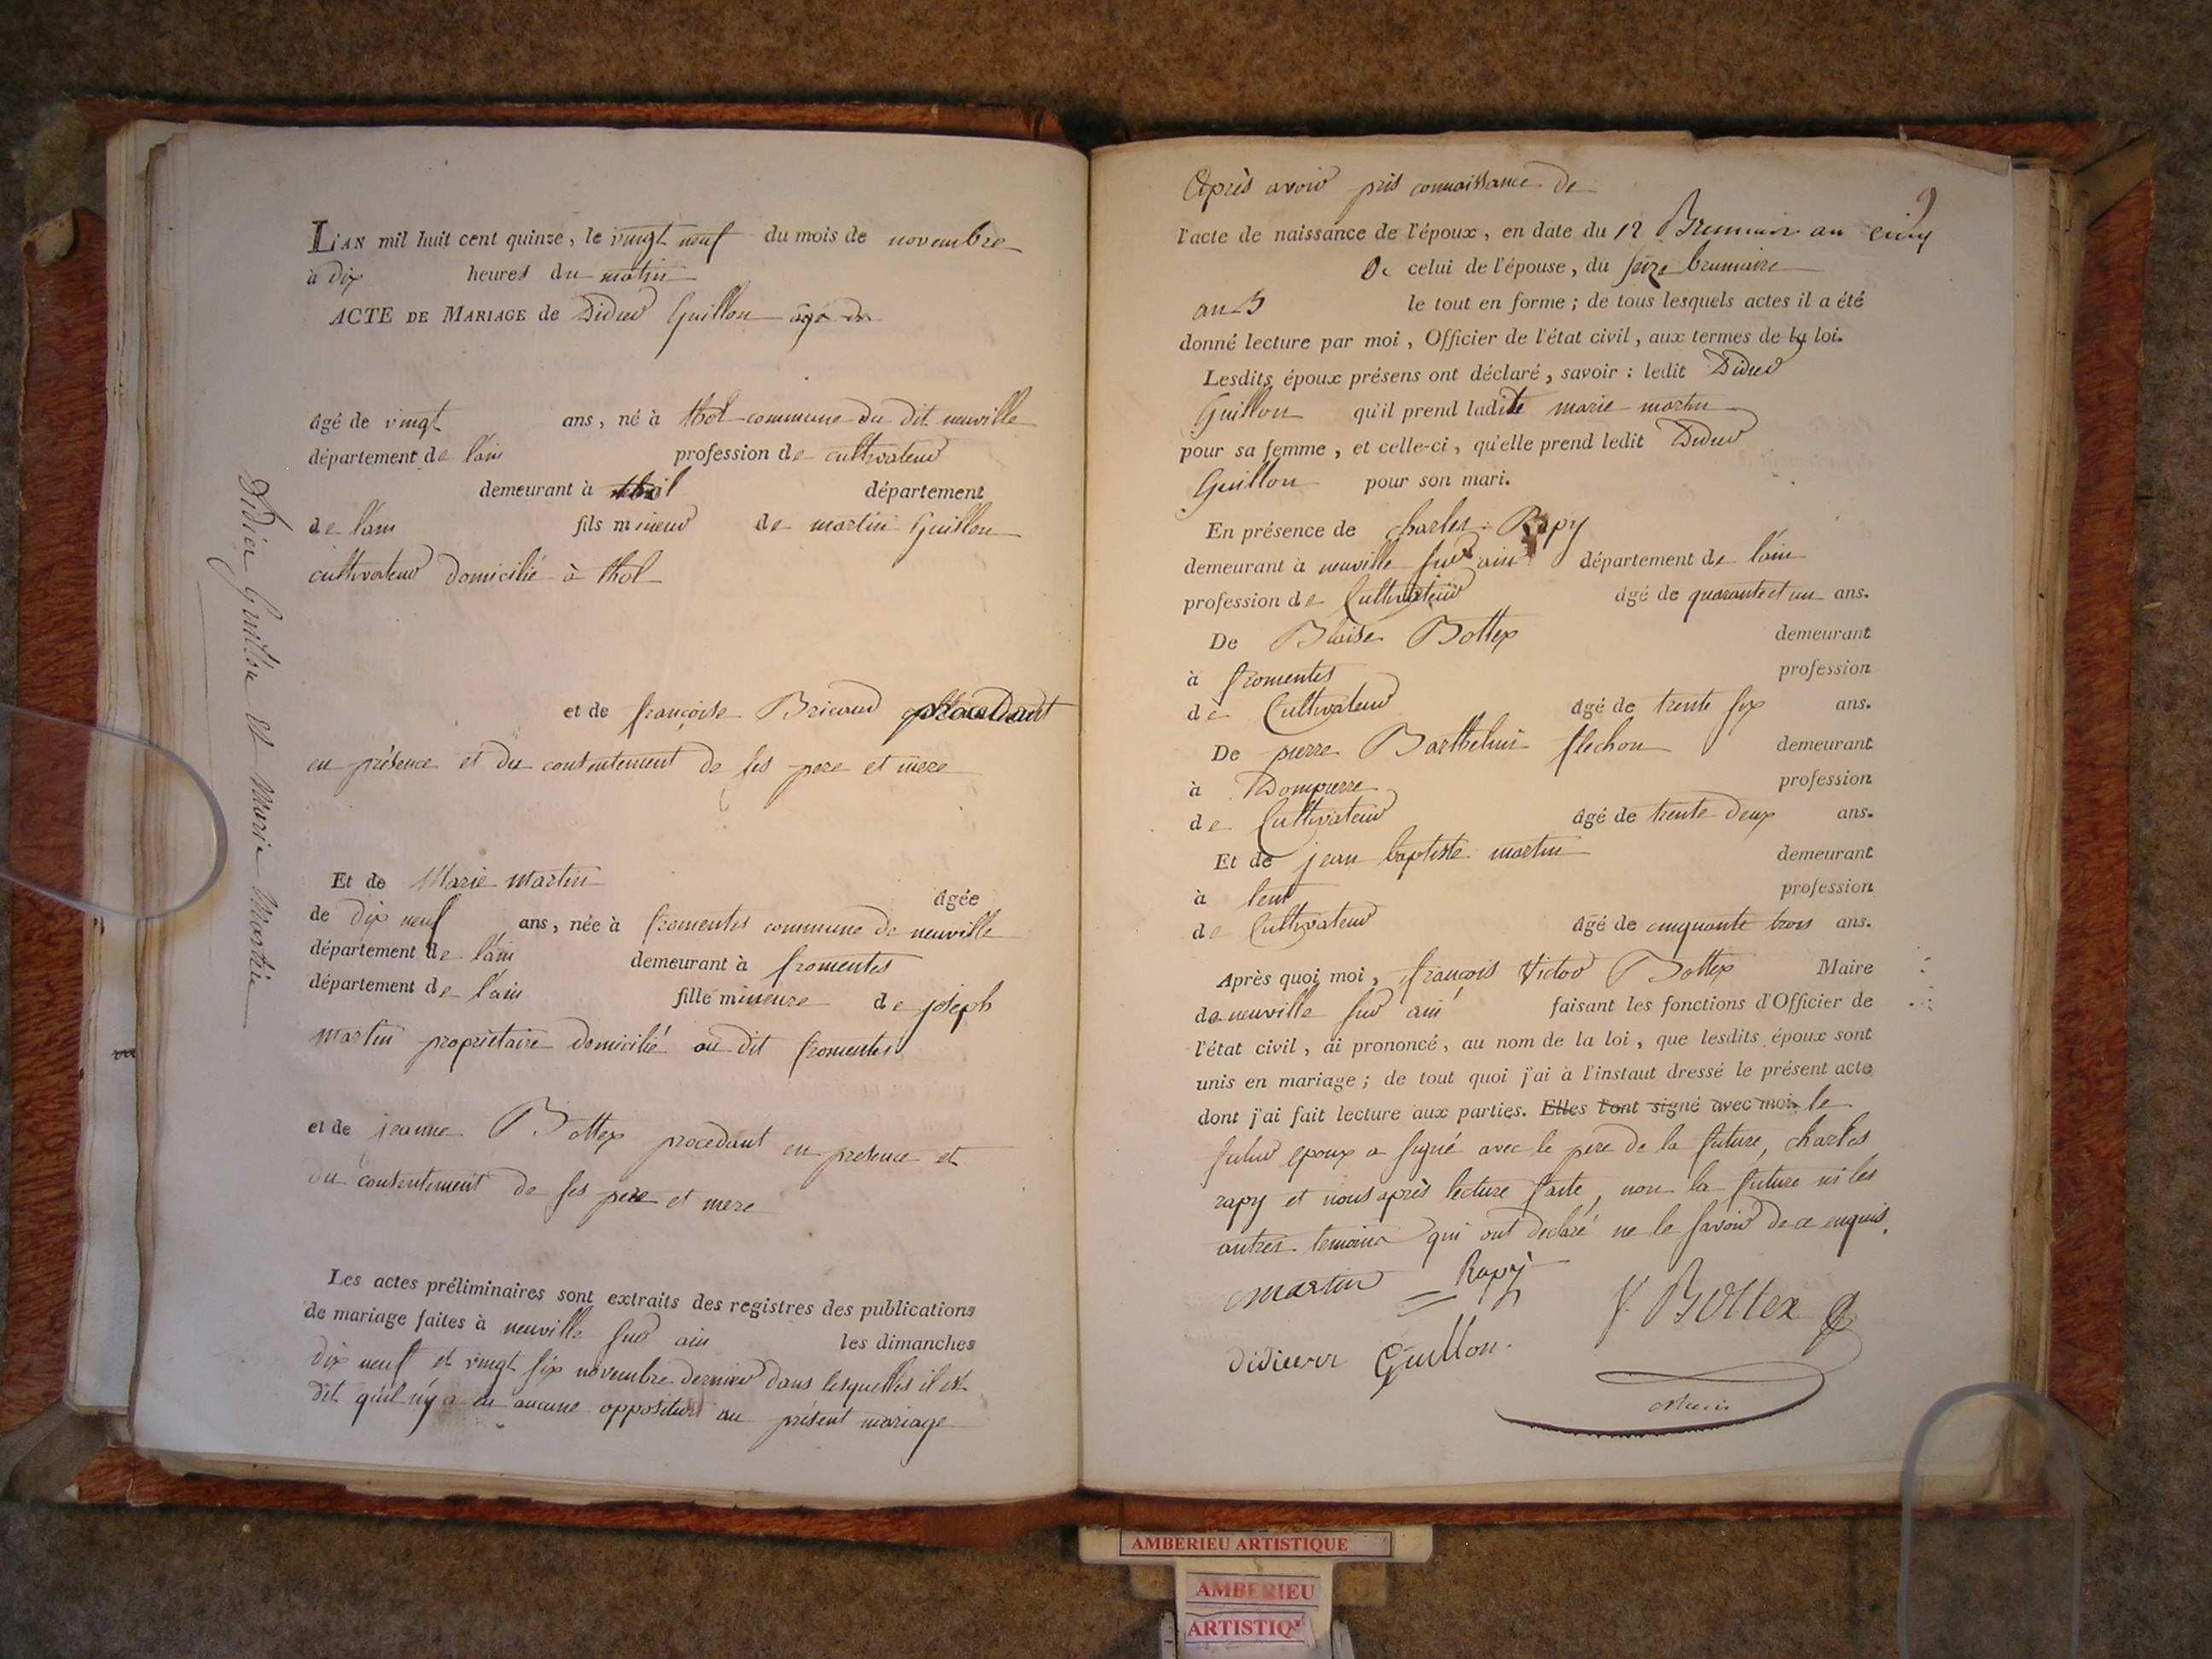 Didier Guillon et Marie Martin
L'AN mil huit cent quinze, le vingt neuf du mois de novembre
à dix heures du matin
ACTE DE MARIAGE de Didier Guillon agé de
âgé de vingt ans, né à thol commune du dit neuville
département de l'ain profession de cultivateur
demeurant à thol département
de l'ain fils mineur de martin Guillon
cultivateur domicilié à thol
et de françoise Bricaud procedant
en présence et du consentement de ses pere et mere
Et de Marie Martin âgée
de dix neuf ans, née à fromentes commune de neuville
département de l'ain demeurant à fromentes
département de l'ain fille mineure de joseph
martin propriétaire domicilié au dit fromentes
et de jeanne Bottex procedant en presence et
du consentement de ses pere et mere
Les actes préliminaires sont extraits des registres des publications
de mariage faites à neuville sur ain les dimanches
dix neuf et vingt six novembre dernier dans lesquelles il est
dit qu'il n'y a eu aucune opposition au présent mariage
9
Après avoir pris connaissance de
l'acte de naissance de l'époux, en date du 12 Brumaire an cinq
De celui de l'épouse, du seize brumaire
an 5 le tout en forme; de tous lesquels actes il a été
donné lecture par moi, Officier de l'état civil, aux termes de la loi.
Lesdits époux présens ont déclaré, savoir: ledit Didier
Guillon qu'il prend ladite marie martin
pour sa femme, et celle-ci, qu'elle prend ledit Didier
Guillon pour son mari.
En présence de charles Rapy
demeurant à neuville sur ain département de l'ain
profession de Cultivateur âgé de quarante et un ans.
De Blaise Bottex demeurant
à fromentes profession
de Cultivateur âgé de trente six ans.
De pierre Barthelmi flechon demeurant
à Dompierre profession
de Cultivateur âgé de trente deux ans.
Et de jean baptiste martin demeurant
à lent profession
de Cultivateur âgé de cinquante trois ans.
Après quoi moi, françois Victor Bottex Maire
de neuville sur ain faisant les fonctions d'Officier de
l'état civil, ai prononcé, au nom de la loi, que lesdits époux sont
unis en mariage; de tout quoi j'ai à l'instant dressé le présent acte
dont j'ai fait lecture aux parties. Elles l'ont signé avec moi. le
futur epoux a signé avec le pere de la future, charles
rapy et nous après lecture faite, non la future ni les
autres temoins qui ont declaré ne le savoir de ce enquis.
martin Rapy V. Bottex
didier Guillon.
Maire
AMBERIEU ARTISTIQUE
AMBERIEU
ARTISTIQ